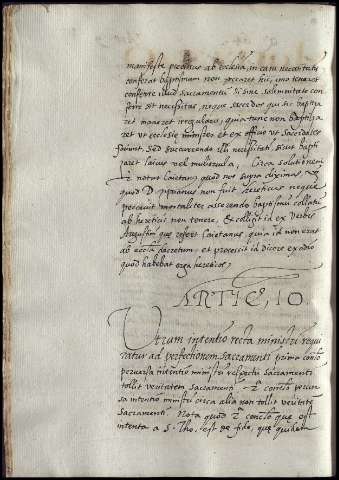 manifeste precisus ab ecclesia, in casu necessitatis
conferat baptismum non peccaret hic, imo tenetur
conferre illud sacramentum si sine solemnitate con
ferre sit necessitas, neque sacerdos qui sic baptiza
ret maneret irregularis, quia tunc non baptiza
ret ut ecclesie minister et ex officio ut sacerdotes
sed succurrendo illi necessitati sicut bapti
zaret laicus vel muliercula, Circa solutionem
notat Caietanus quod nos supra diximus
quod D. Ciprianus non fuit hereticus neque
peccavit mortaliter asserendo baptismum collatum
ab hereticis non tenere, & colligit id ex verbis
Augustini que refert Caietanus, quia id non erat
ab ecclesia et processit id dicere ex odio
quod habebat erga hereticos;
ARTIC, 10.
Utrum intentio recta ministri requi
ratur ad perfectionem sacramenti primo conclusio
perversa intentio ministri respectu sacramenti
tollit veritatem sacramenti - 2ª conclusio perver
sa intentio ministri circa alia non tollit veritatem
sacramenti. Nota quod 2ª conclusio que est
intenta a S. Tho, est de fide, que quidem